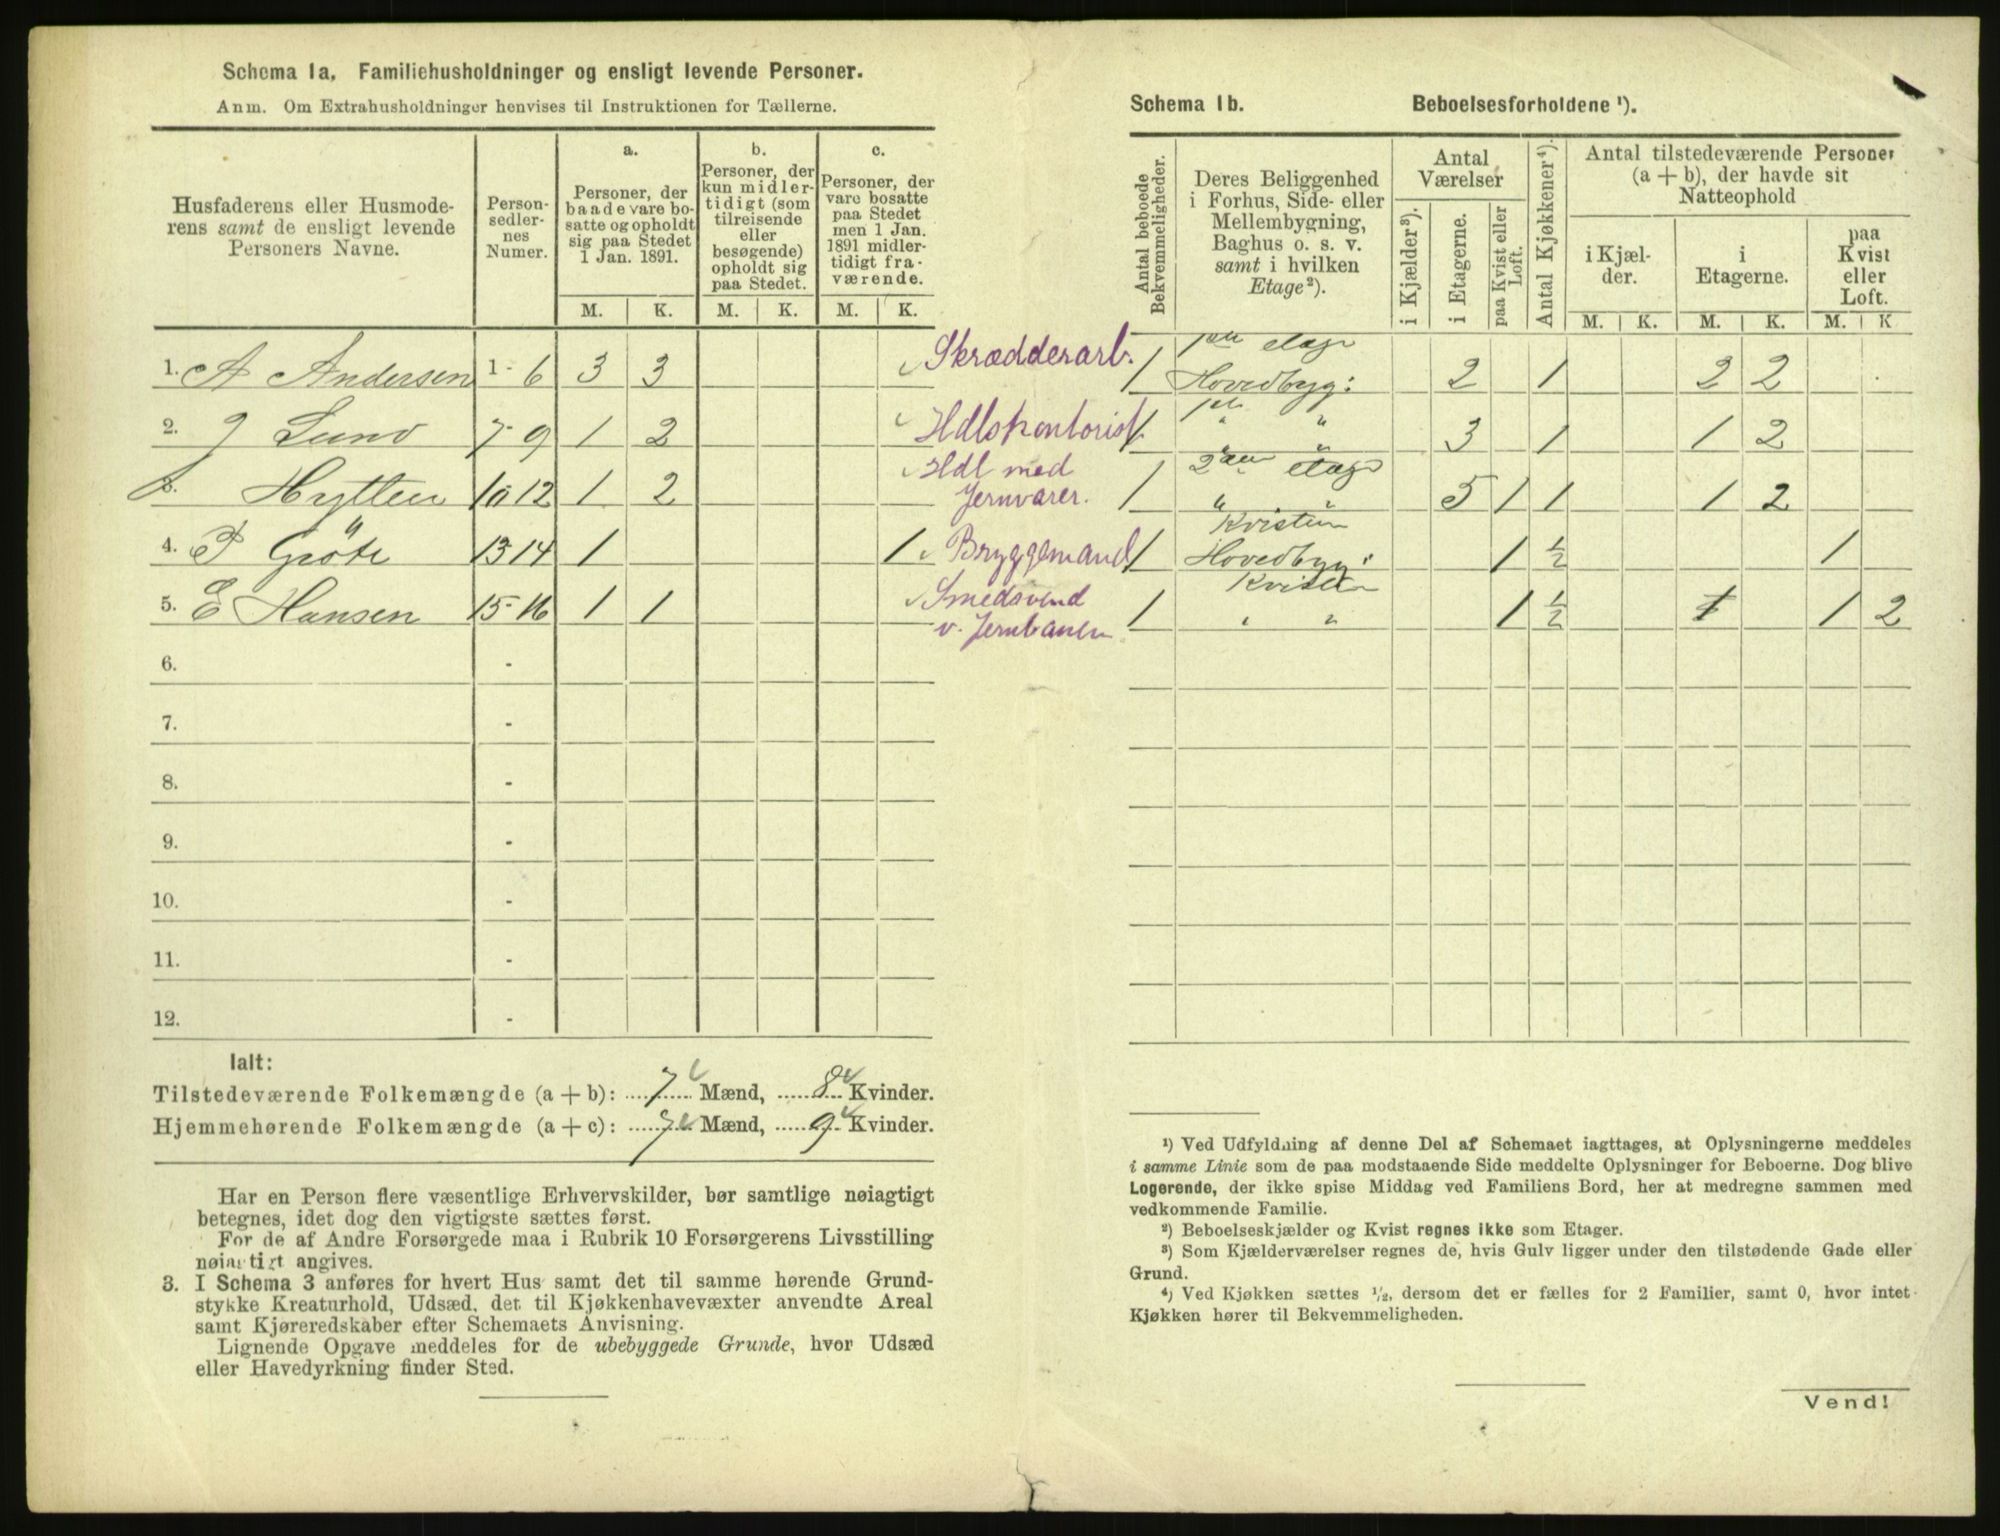 Schema 1a. Familiehusholdninger og ensligt levende Personer.
Anm. Om Extrahusholdninger henvises til Instruktionen for Tællerne.
Husfaderens eller Husmoderens samt de ensligt levende Personers Navne.
Person-sedlernes Numer.
a.
Personer, der baade vare bosatte og opholdt sig paa Stedet 1 Jan. 1891.
b.
Personer, der kun midlertidigt (som tilreisende eller besøgende) opholdt sig paa Stedet.
c.
Personer, der vare bosatte paa Stedet men 1 Jan. 1891 midlertidigt fraværende.
M. K. M. K. M. K.
1. A Andersen 1-6 3 3 Skrædderarb.
2. J Lund 7-9 1 2 Hdlskontorist
3. Hytten 10 12 1 2 Hdl med Jernvarer.
4. P Gröte 13 14 1 1 Bryggemand
5. E Hansen 15-16 1 1 Smedsvend v. Jernbanen
6. -
7. -
8. -
9. -
10. -
11. -
12. -
Ialt:
Tilstedeværende Folkemængde (a + b): 7 Mænd, 8 Kvinder.
Hjemmehørende Folkemængde (a + c): 7 Mænd, 9 Kvinder.
Har en Person flere væsentlige Erhvervskilder, bør samtlige nøiagtigt
betegnes, idet dog den vigtigste sættes først.
For de af Andre Forsørgede maa i Rubrik 10 Forsørgerens Livsstilling
nøiagtigt angives.
3. I Schema 3 anføres for hvert Hus samt det til samme hørende Grund-
stykke Kreaturhold, Udsæd, det til Kjøkkenhavevæxter anvendte Areal
samt Kjøreredskaber efter Schemaets Anvisning.
Lignende Opgave meddeles for de ubebyggede Grunde, hvor Udsæd
eller Havedyrkning finder Sted.
Schema 1b. Beboelsesforholdene ¹).
Antal beboede Bekvemmeligheder.
Deres Beliggenhed i Forhus, Side- eller Mellembygning, Baghus o. s. v. samt i hvilken Etage²).
Antal Værelser
i Kjælder³).
i Etagerne.
paa Kvist eller Loft.
Antal Kjøkkener⁴).
Antal tilstedeværende Personer (a + b), der havde sit Natteophold
i Kjælder.
i Etagerne.
paa Kvist eller Loft.
M. K. M. K. M. K
1 1ste etage Hovedbyg: 2 1 2 2
1 1ste " " 3 1 1 2
1 2den etage " " 5 1 1 1 2
1 Kvisten Hovedbyg: 1 ½ 1
1 Kvisten " " 1 ½ 1 1 2
¹) Ved Udfyldning af denne Del af Schemaet iagttages, at Oplysningerne meddeles
i samme Linie som de paa modstaaende Side meddelte Oplysninger for Beboerne. Dog blive
Logerende, der ikke spise Middag ved Familiens Bord, her at medregne sammen med
vedkommende Familie.
²) Beboelseskjælder og Kvist regnes ikke som Etager.
³) Som Kjælderværelser regnes de, hvis Gulv ligger under den tilstødende Gade eller
Grund.
⁴) Ved Kjøkken sættes ½, dersom det er fælles for 2 Familier, samt 0, hvor intet
Kjøkken hører til Bekvemmeligheden.
Vend!